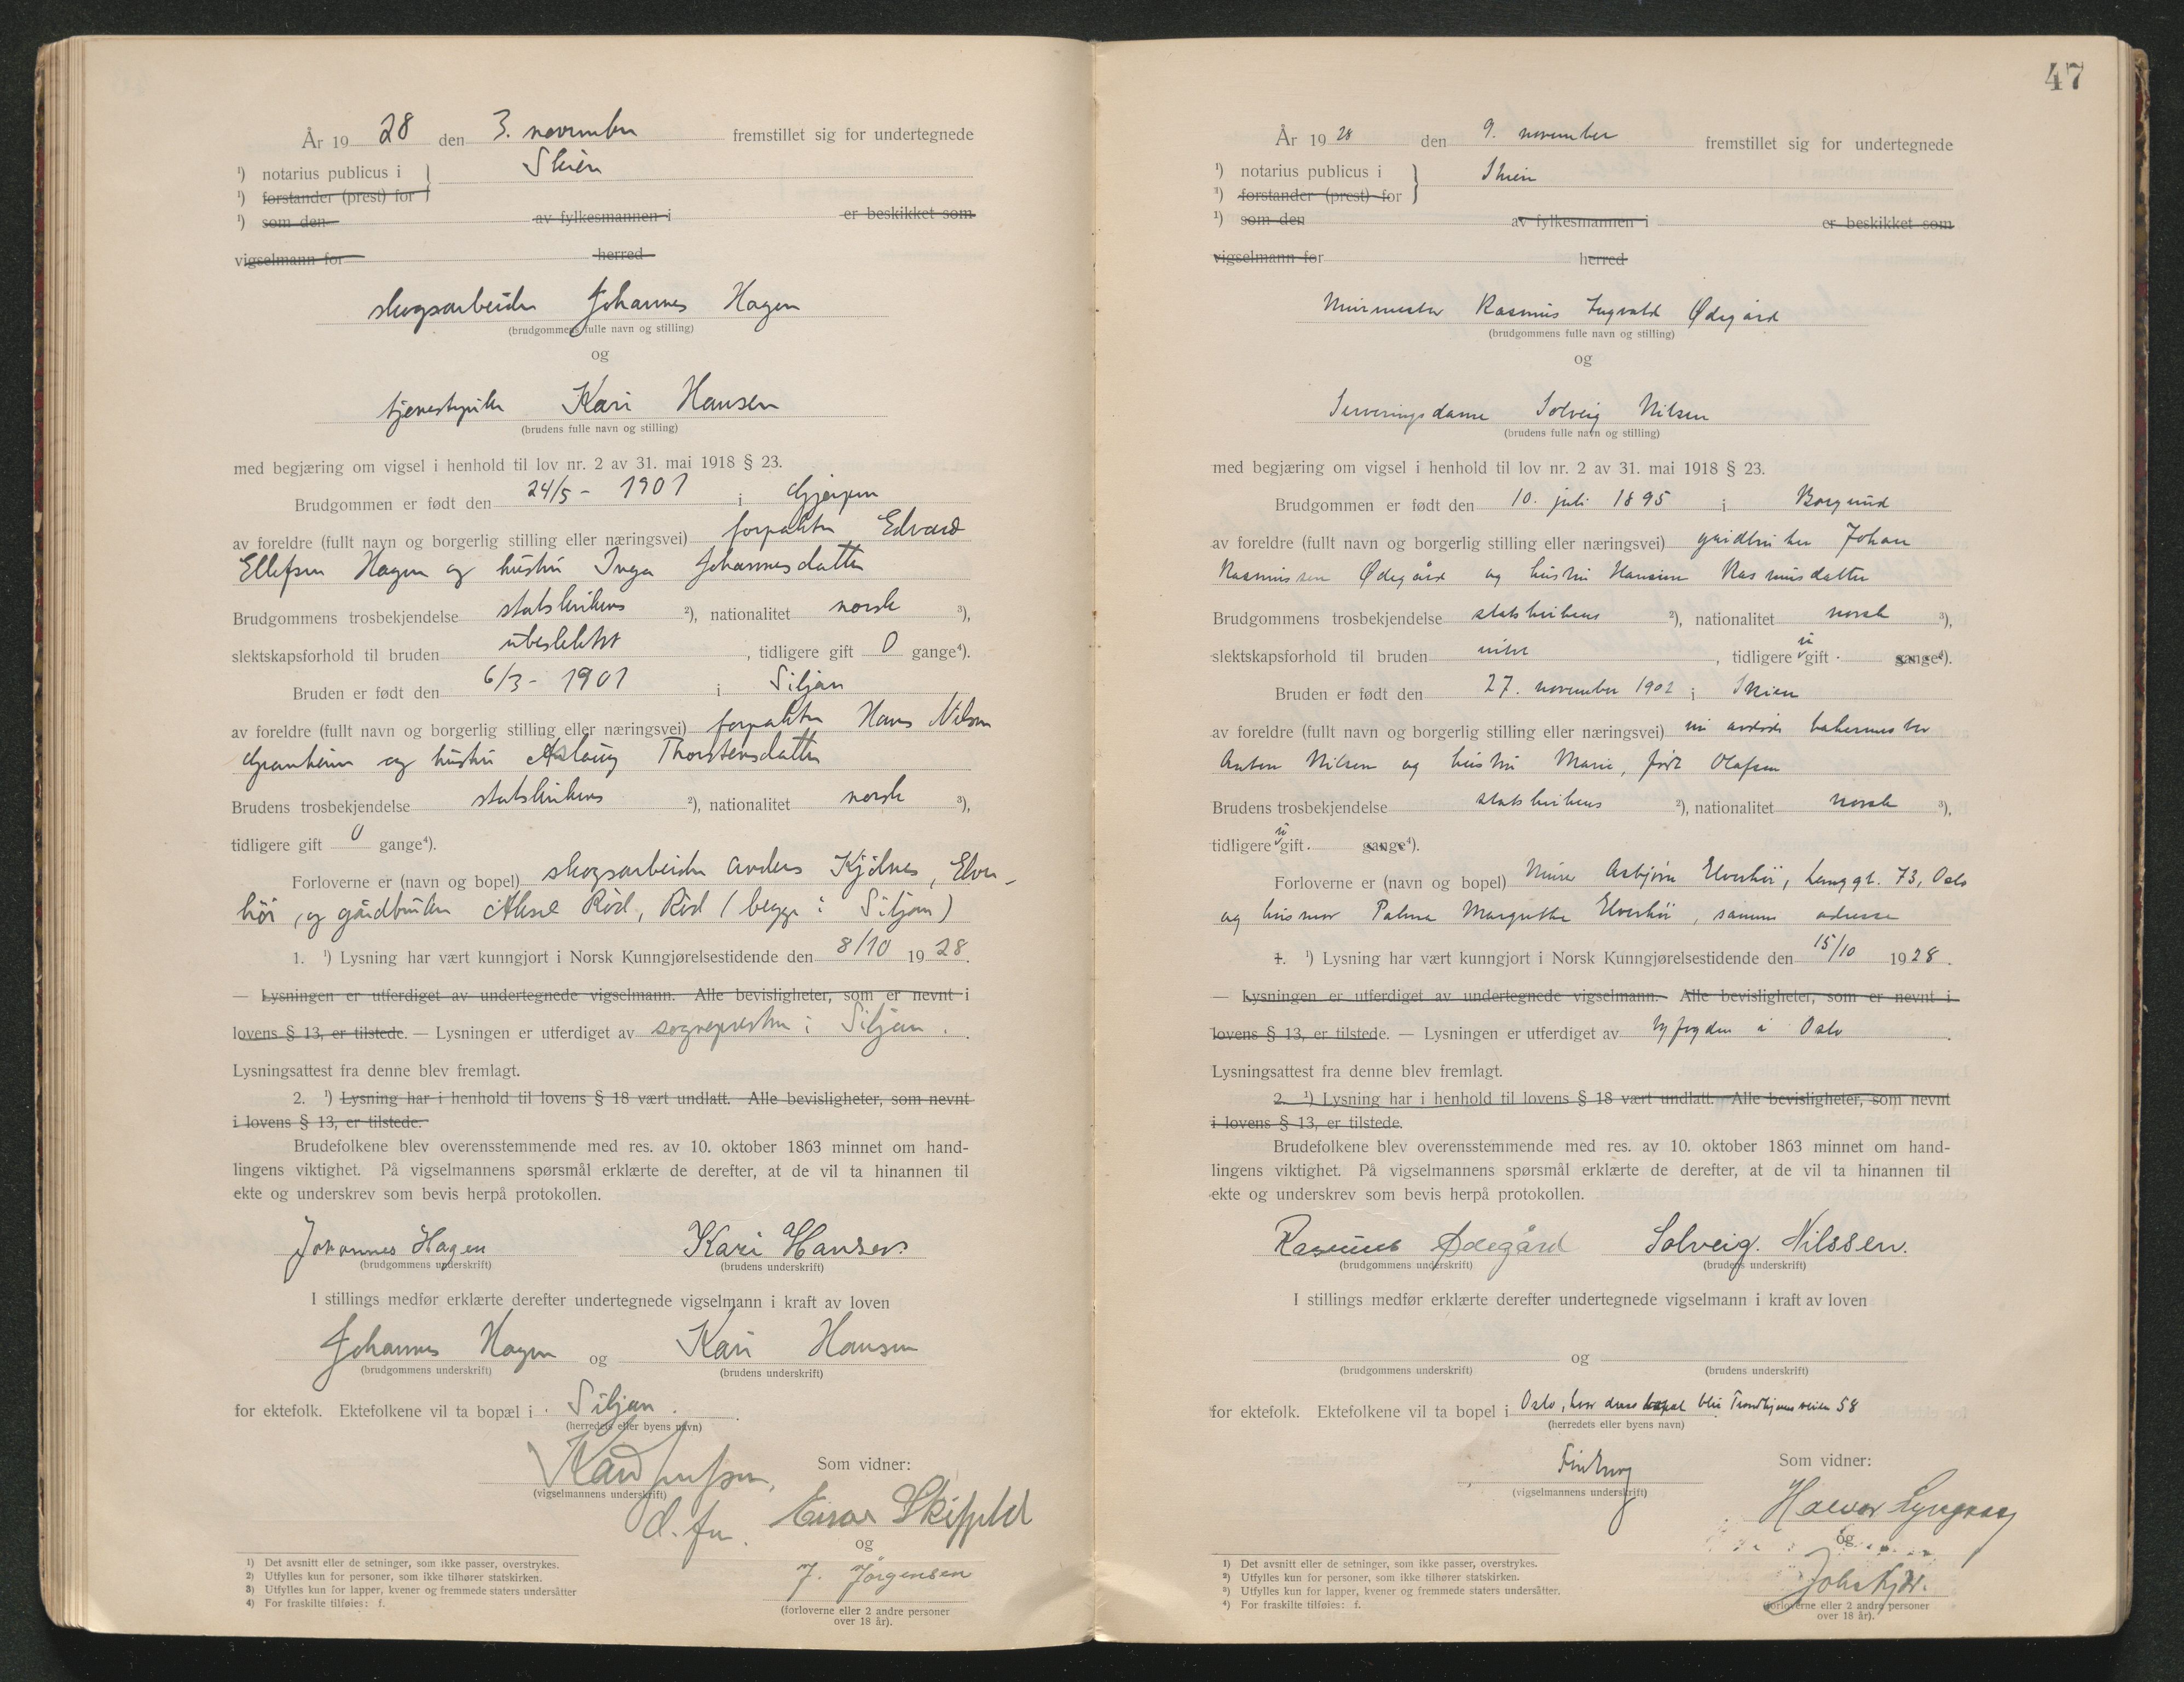 År 19 28 den 3. november fremstillet sig for undertegnede
¹) notarius publicus i Skien
¹) forstander (prest) for
¹) som den av fylkesmannen i er beskikket som
vigselmann for herred
skogsarbeider Johannes Hagen
(brudgommens fulle navn og stilling)
og
tjenestepike Kari Hansen
(brudens fulle navn og stilling)
med begjæring om vigsel i henhold til lov nr. 2 av 31. mai 1918 § 23.
Brudgommen er født den 24/5 - 1901 i Gjerpen
av foreldre (fullt navn og borgerlig stilling eller næringsvei) forpakter Edvard
Ellefsen Hagen og hustru Inga Johannesdatter
Brudgommens trosbekjendelse statskirkens ²), nationalitet norsk ³),
slektskapsforhold til bruden ubeslektet, tidligere gift 0 gange⁴).
Bruden er født den 6/3 - 1901 i Siljan
av foreldre (fullt navn og borgerlig stilling eller næringsvei) forpakter Hans Nilsen
Granheim og hustru Aslaug Thorstensdatter
Brudens trosbekjendelse statskirkens ²), nationalitet norsk ³),
tidligere gift 0 gange⁴).
Forloverne er (navn og bopel) skogsarbeider Anders Kjølnes, Elver-
høi, og gårdbruker Aksel Rød, Rød (begge i Siljan)
1. ¹) Lysning har vært kunngjort i Norsk Kunngjørelsestidende den 8/10 19 28.
— Lysningen er utferdiget av undertegnede vigselmann. Alle bevisligheter, som er nevnt i
lovens § 13, er tilstede. — Lysningen er utferdiget av sognepresten i Siljan.
Lysningsattest fra denne blev fremlagt.
2. ¹) Lysning har i henhold til lovens § 18 vært undlatt. Alle bevisligheter, som nevnt
i lovens § 13, er tilstede.
Brudefolkene blev overensstemmende med res. av 10. oktober 1863 minnet om hand-
lingens viktighet. På vigselmannens spørsmål erklærte de derefter, at de vil ta hinannen til
ekte og underskrev som bevis herpå protokollen.
Johannes Hagen Kari Hansen
(brudgommens underskrift) (brudens underskrift)
I stillings medfør erklærte derefter undertegnede vigselmann i kraft av loven
Johannes Hagen og Kari Hansen
(brudgommens underskrift) (brudens underskrift)
for ektefolk. Ektefolkene vil ta bopæl i Siljan.
(herredets eller byens navn)
Som vidner:
(vigselmannens underskrift)
Einar
og
J. Jørgensen
(forloverne eller 2 andre personer
over 18 år).
1) Det avsnitt eller de setninger, som ikke passer, overstrykes.
2) Utfylles kun for personer, som ikke tilhører statskirken.
3) Utfylles kun for lapper, kvener og fremmede staters undersåtter
4) For fraskilte tilføies: f.
47
År 19 28 den 9. november fremstillet sig for undertegnede
¹) notarius publicus i Skien
¹) forstander (prest) for
¹) som den av fylkesmannen i er beskikket som
vigselmann for herred
Murmester Rasmus Ingvald Ødegård
(brudgommens fulle navn og stilling)
og
Serveringsdame Solveig Nilsen
(brudens fulle navn og stilling)
med begjæring om vigsel i henhold til lov nr. 2 av 31. mai 1918 § 23.
Brudgommen er født den 10. juli 1895 i Borgund
av foreldre (fullt navn og borgerlig stilling eller næringsvei) gårdbruker Johan
Rasmussen Ødegård og hustru Hansine Rasmusdatter
Brudgommens trosbekjendelse statskirkens ²), nationalitet norsk ³),
slektskapsforhold til bruden intet, tidligere ugift gange⁴).
Bruden er født den 27. november 1902 i Skien
av foreldre (fullt navn og borgerlig stilling eller næringsvei) nu avdøde bakermester
Anton Nilsen og hustru Marie, født Olafsen
Brudens trosbekjendelse statskirkens ²), nationalitet norsk ³),
tidligere ugift gange⁴).
Forloverne er (navn og bopel) Murer Asbjørn Elverhøi, Langgt. 73, Oslo
og husmor Palma Margrethe Elverhøi, samme adresse
1. ¹) Lysning har vært kunngjort i Norsk Kunngjørelsestidende den 15/10 19 28.
— Lysningen er utferdiget av undertegnede vigselmann. Alle bevisligheter, som er nevnt i
lovens § 13, er tilstede. — Lysningen er utferdiget av byfogden i Oslo
Lysningsattest fra denne blev fremlagt.
2. ¹) Lysning har i henhold til lovens § 18 vært undlatt. Alle bevisligheter, som nevnt
i lovens § 13, er tilstede.
Brudefolkene blev overensstemmende med res. av 10. oktober 1863 minnet om hand-
lingens viktighet. På vigselmannens spørsmål erklærte de derefter, at de vil ta hinannen til
ekte og underskrev som bevis herpå protokollen.
Rasmus Ødegård Solveig. Nilssen.
(brudgommens underskrift) (brudens underskrift)
I stillings medfør erklærte derefter undertegnede vigselmann i kraft av loven
og
(brudgommens underskrift) (brudens underskrift)
for ektefolk. Ektefolkene vil ta bopel i Oslo, hvor deres bopæl blir Trondhjemsveien 58
(herredets eller byens navn)
Som vidner:
(vigselmannens underskrift)
Halvor
og
(forloverne eller 2 andre personer
over 18 år).
1) Det avsnitt eller de setninger, som ikke passer, overstrykes.
2) Utfylles kun for personer, som ikke tilhører statskirken.
3) Utfylles kun for lapper, kvener og fremmede staters undersåtter.
4) For fraskilte tilføies: f.